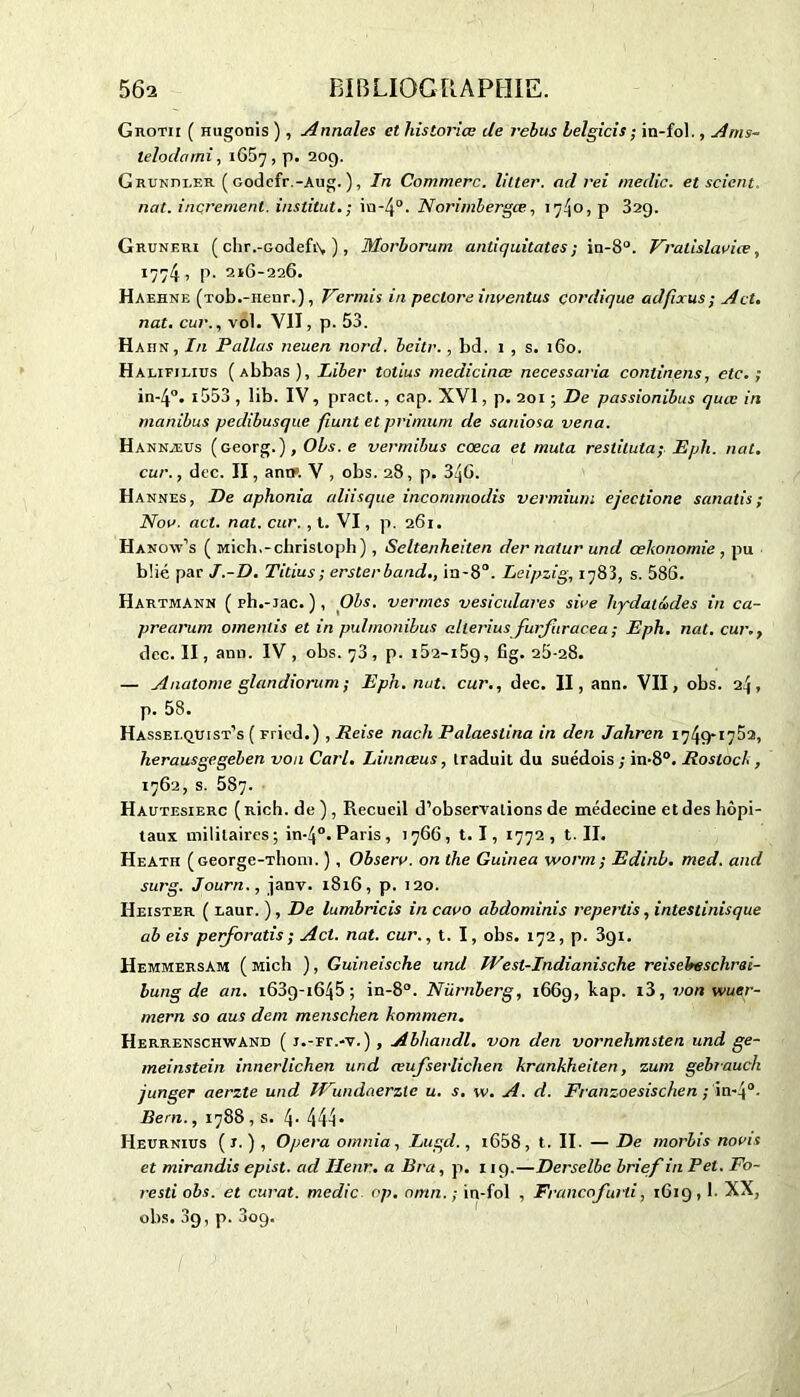 562 BIBLIOGRAPHIE.
Grotii ( Hugonis ) , Annales et historiæ de rebus belgicis ; in-fol. , Ams-
telodami , 1657 , p. 209.
Grundler ( Godefr.-Aug. ), In Commerc. litter. ad rei medic. et scient.
nat. increment. institut. ; in-4°. Norimbergæ , 1740, p 329.
Gruneri ( chr.-Godefr. ) , Morborum antiquitates ; in-8°. Vratislaviæ ,
1774 , p. 216-226.
Haehne (Tob.-Henr.) , Vermis in pectore inventus cordique adfixus ; Act.
nat. cur. , vol. VII , p. 53.
Hahn , In Pallas neuen nord. beitr. , bd. 1 , s. 160.
Halifilius ( Abbas ), Liber totius medicinæ necessaria continens, etc. ;
in-4°. 1553 , lib. IV , pract. , cap. XVI , p. 201 ; De passionibus quæ in
manibus pedibusque fiunt et primum de saniosa vena.
Hannæus (Georg.) , Obs. e vermibus cœca et muta restituta ; Eph. nat.
cur. , dec. II , ann. V , obs. 28 , p. 346.
Hannes, De aphonia aliisque incommodis vermium ejectione sanatis ;
Nov. act. nat. cur. , t. VI , p. 261.
Hanow's ( Mich.-christoph) , Seltenheiten der natur und œkonomie , pu
blié par J.-D. Titius ; erster band., in-8°. Leipzig, 1783, s. 586.
Hartmann ( Ph.-Jac. ) , Obs. vermes vesiculares sive hydatôdes in ca-
prearum omentis et in pulmonibus alterius furfuracea ; Eph. nat. cur.,
dec. II , ann. IV , obs. 73 , p. 152-159, fig. 25-28.
— Anatome glandiorum ; Eph. nat. cur., dec. II , ann. VII , obs. 24 ,
p. 58.
Hasselquist's ( Fried.) , Reise nach Palaestina in den Jahren 1749-1752,
herausgegeben von Carl. Linnæus , traduit du suédois ; in-8°. Rostock ,
1762, s. 587.
Hautesierc ( Rich. de ) , Recueil d'observations de médecine et des hôpi-
taux militaires ; in-4°. Paris , 1766, t. I , 1772 , t. II.
Heath ( George-Thom. ) , Observ. on the Guinea worm ; Edinb. med. and
surg. Journ. , janv. 1816 , p. 120.
Heister ( Laur. ) , De lumbricis in cavo abdominis repertis , intestinisque
ab eis perforatis ; Act. nat. cur. , t. I , obs. 172, p. 391.
Hemmersam ( Mich ), Guineische und West-Indianische reisebeschrei-
bung de an. 1639-1645 ; in-8°. Nürnberg, 1669, kap. 13 , von wuer-
mern so aus dem menschen kommen.
Herrenschwand ( J.-Fr.-v.) , Abhandl. von den vornehmsten und ge-
meinstein innerlichen und æufserlichen krankheiten, zum gebrauch
junger aerzte und Wundaerzte u. s. w. A. d. Franzoesischen ; in-4°.
Bern. , 1788 , s. 4. 444.
Heurnius ( J. ) , Opera omnia , Lugd. , 1658 , t. II. — De morbis novis
et mirandis epist. ad Henr. a Bra , p. 119.—Derselbe brief in Pet. Fo-
resti obs. et curat. medic. op. omn. ; in-fol , Francofurti , 1619 , l. XX,
obs. 39, p. 309.